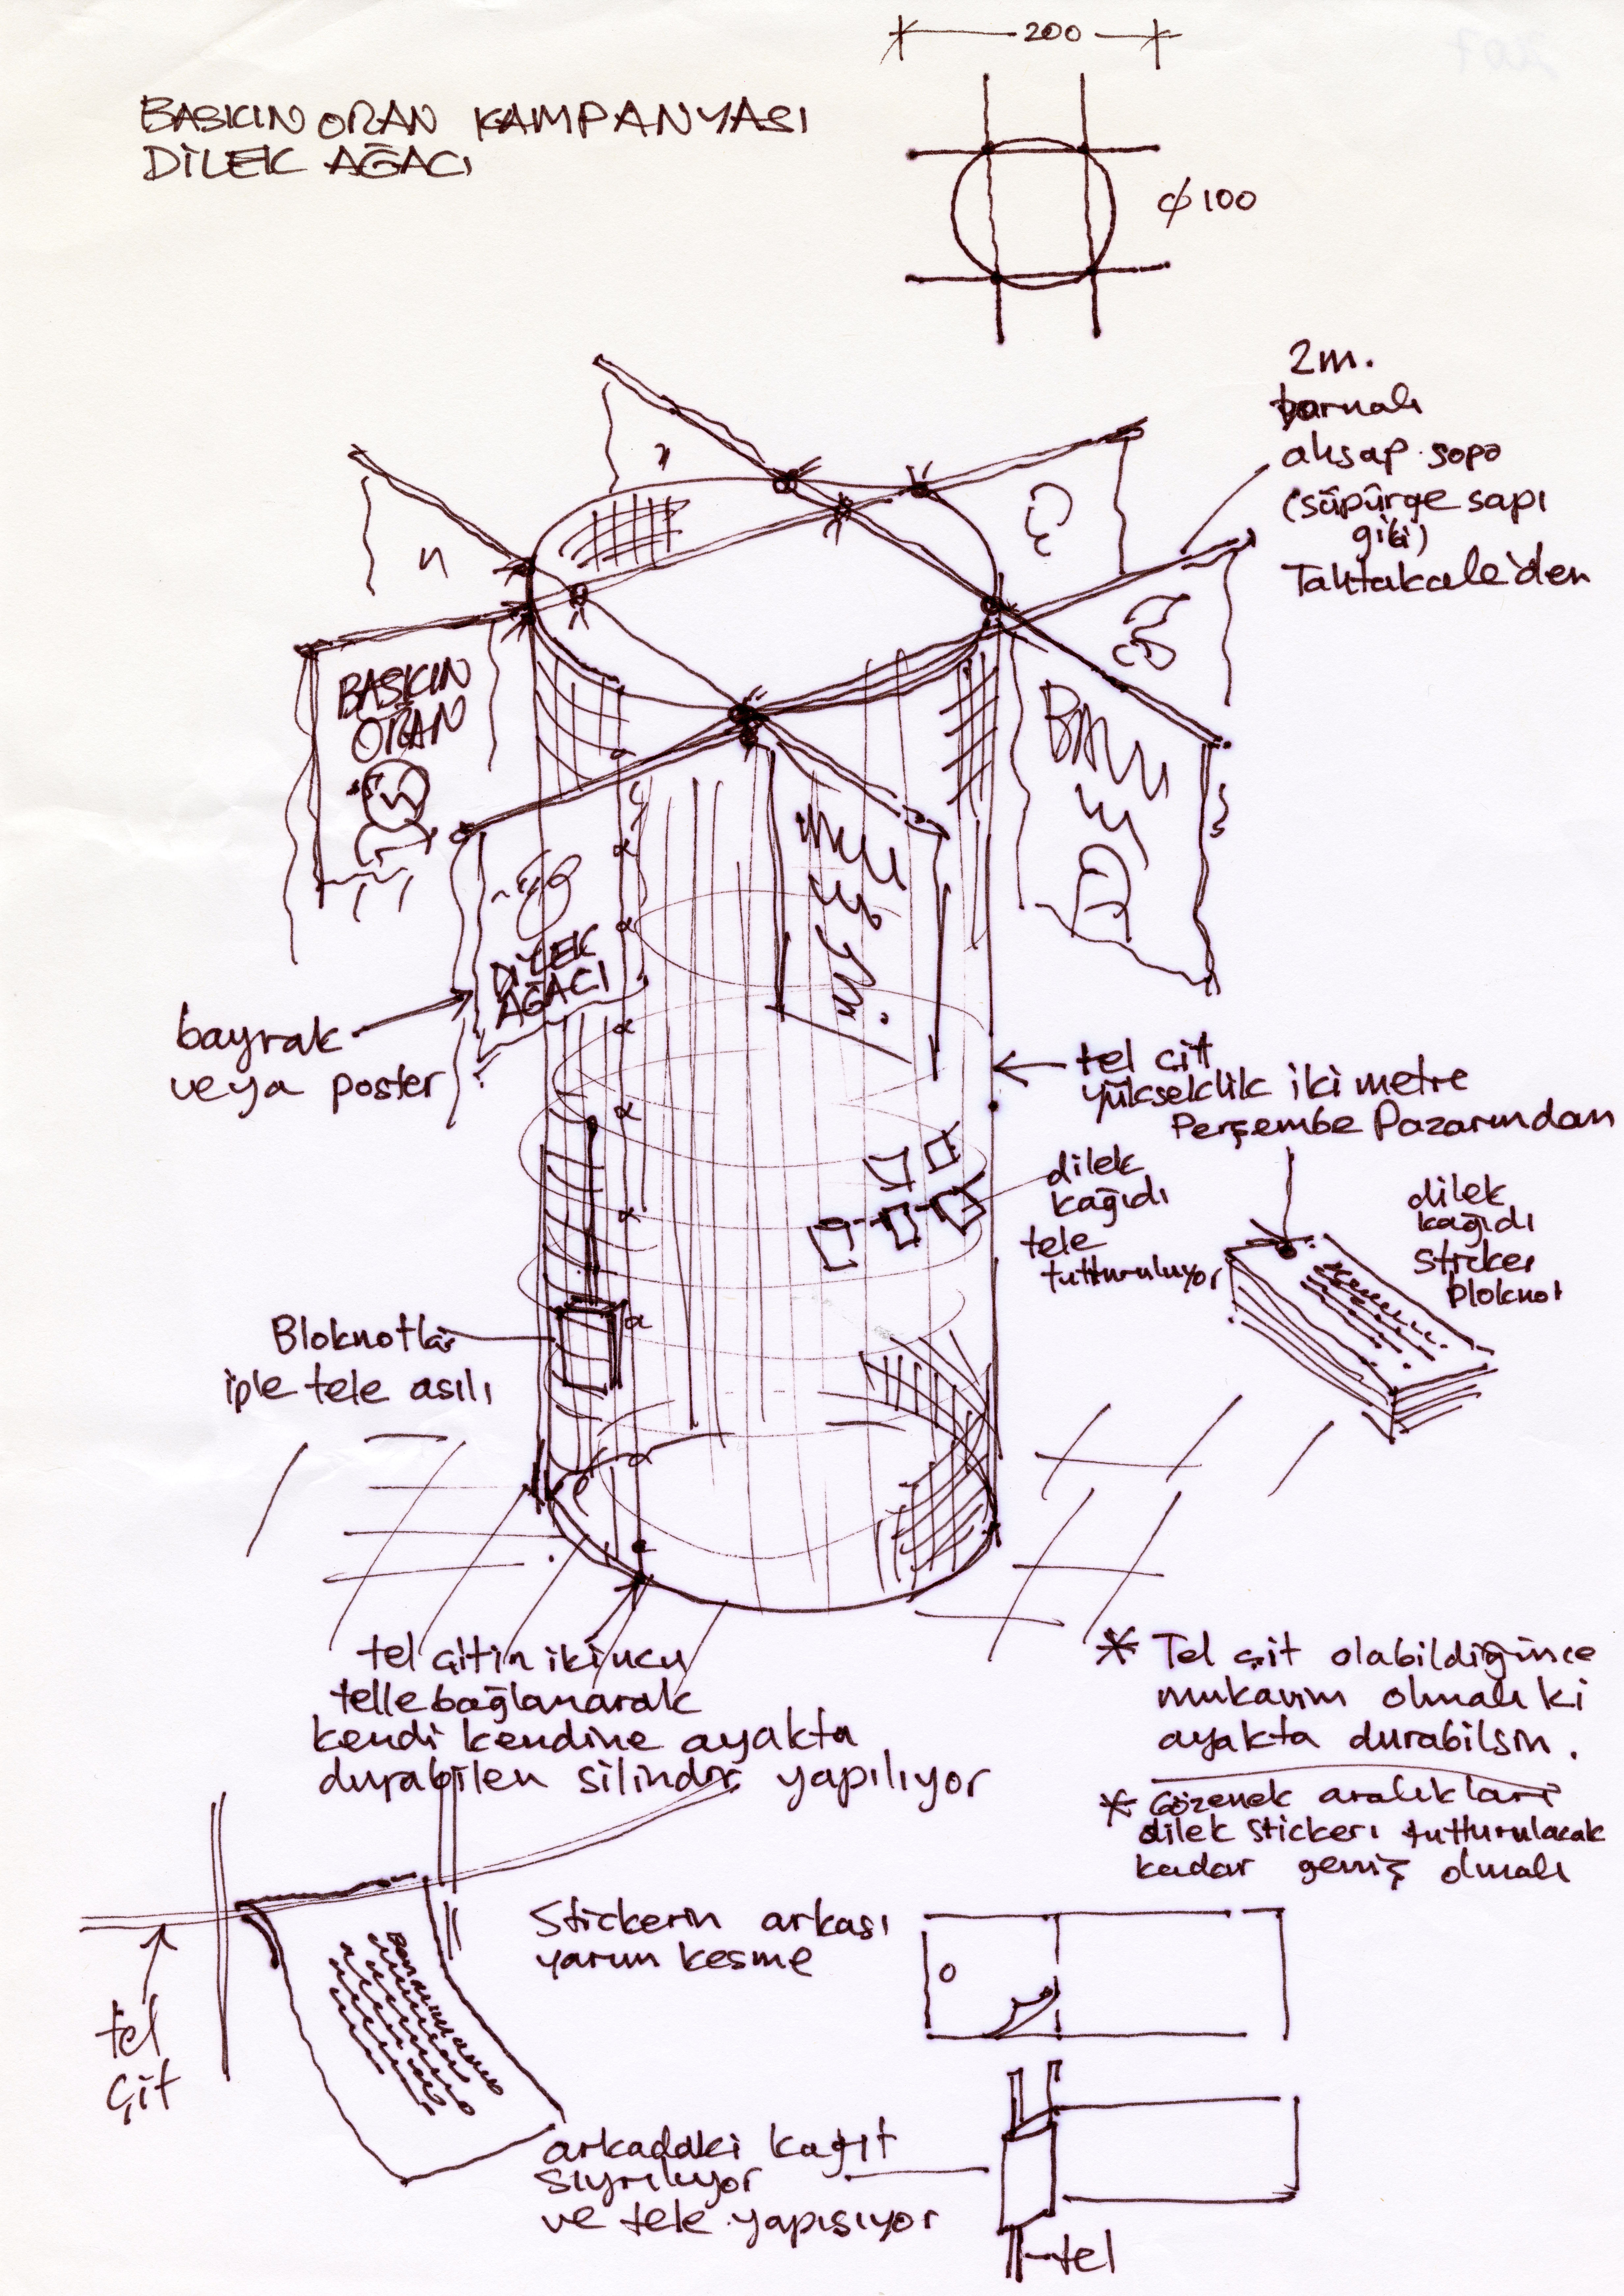 BASKIN ORAN KAMPANYASI
DİLEK AĞACI
200
ϕ 100
2m.
ahşap sopa
(süpürge sapı
gibi)
Tahtakale'den
BASKIN
ORAN
DİLEK
AĞACI
bayrak
veya poster
tel çit
yükseklik iki metre
Perşembe Pazarından
dilek
kağıdı
tele
tutturuluyor
dilek
kağıdı
sticker
bloknot
Bloknotlar
iple tele asılı
tel çitin iki ucu
telle bağlanarak
kendi kendine ayakta
durabilen silindir yapılıyor
* Tel çit olabildiğince
mukavim olmalı ki
ayakta durabilsin.
* Gözenek aralıkları
dilek stickeri tutturulacak
kadar geniş olmalı
Stickerin arkası
yarım kesme
tel
çit
arkadaki kağıt
sıyrılıyor
ve tele yapışıyor
tel